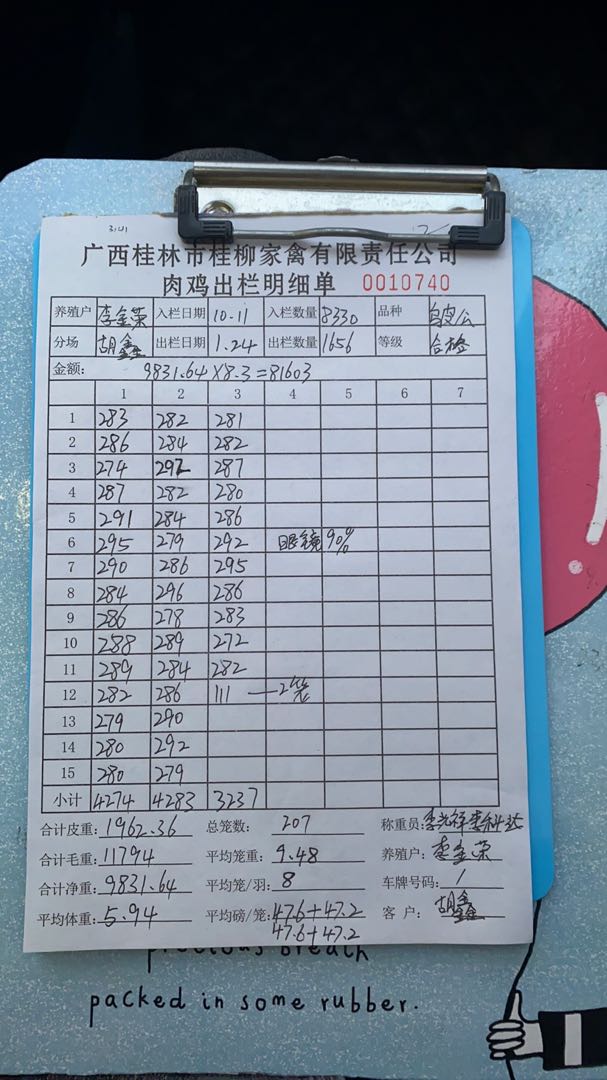 3,141
广西桂林市桂柳家禽有限责任公司
肉鸡出栏明细单 0010740
养殖户 李金荣 入栏日期 10.11 入栏数量 8330 品种 乌皮公
分场 胡鑫 出栏日期 1.24 出栏数量 1656 等级 合格
金额: 9831.64×8.3=81603
1 2 3 4 5 6 7
1 283 282 281
2 286 284 282
3 274 292 287
4 287 282 280
5 291 284 286
6 295 279 292 眼镜 90%
7 290 286 295
8 284 296 286
9 286 278 283
10 288 289 272
11 289 284 282
12 282 286 111 —2笼
13 279 290
14 280 292
15 280 279
小计 4274 4283 3237
合计皮重: 1962.36 总笼数: 207 称重员:
合计毛重: 11794 平均笼重: 9.48 养殖户: 李金荣
合计净重: 9831.64 平均笼/羽: 8 车牌号码: /
平均体重: 5.94 平均磅/笼: 47.6+47.2 客户: 胡鑫
47.6+47.2
precious breath
packed in some rubber.